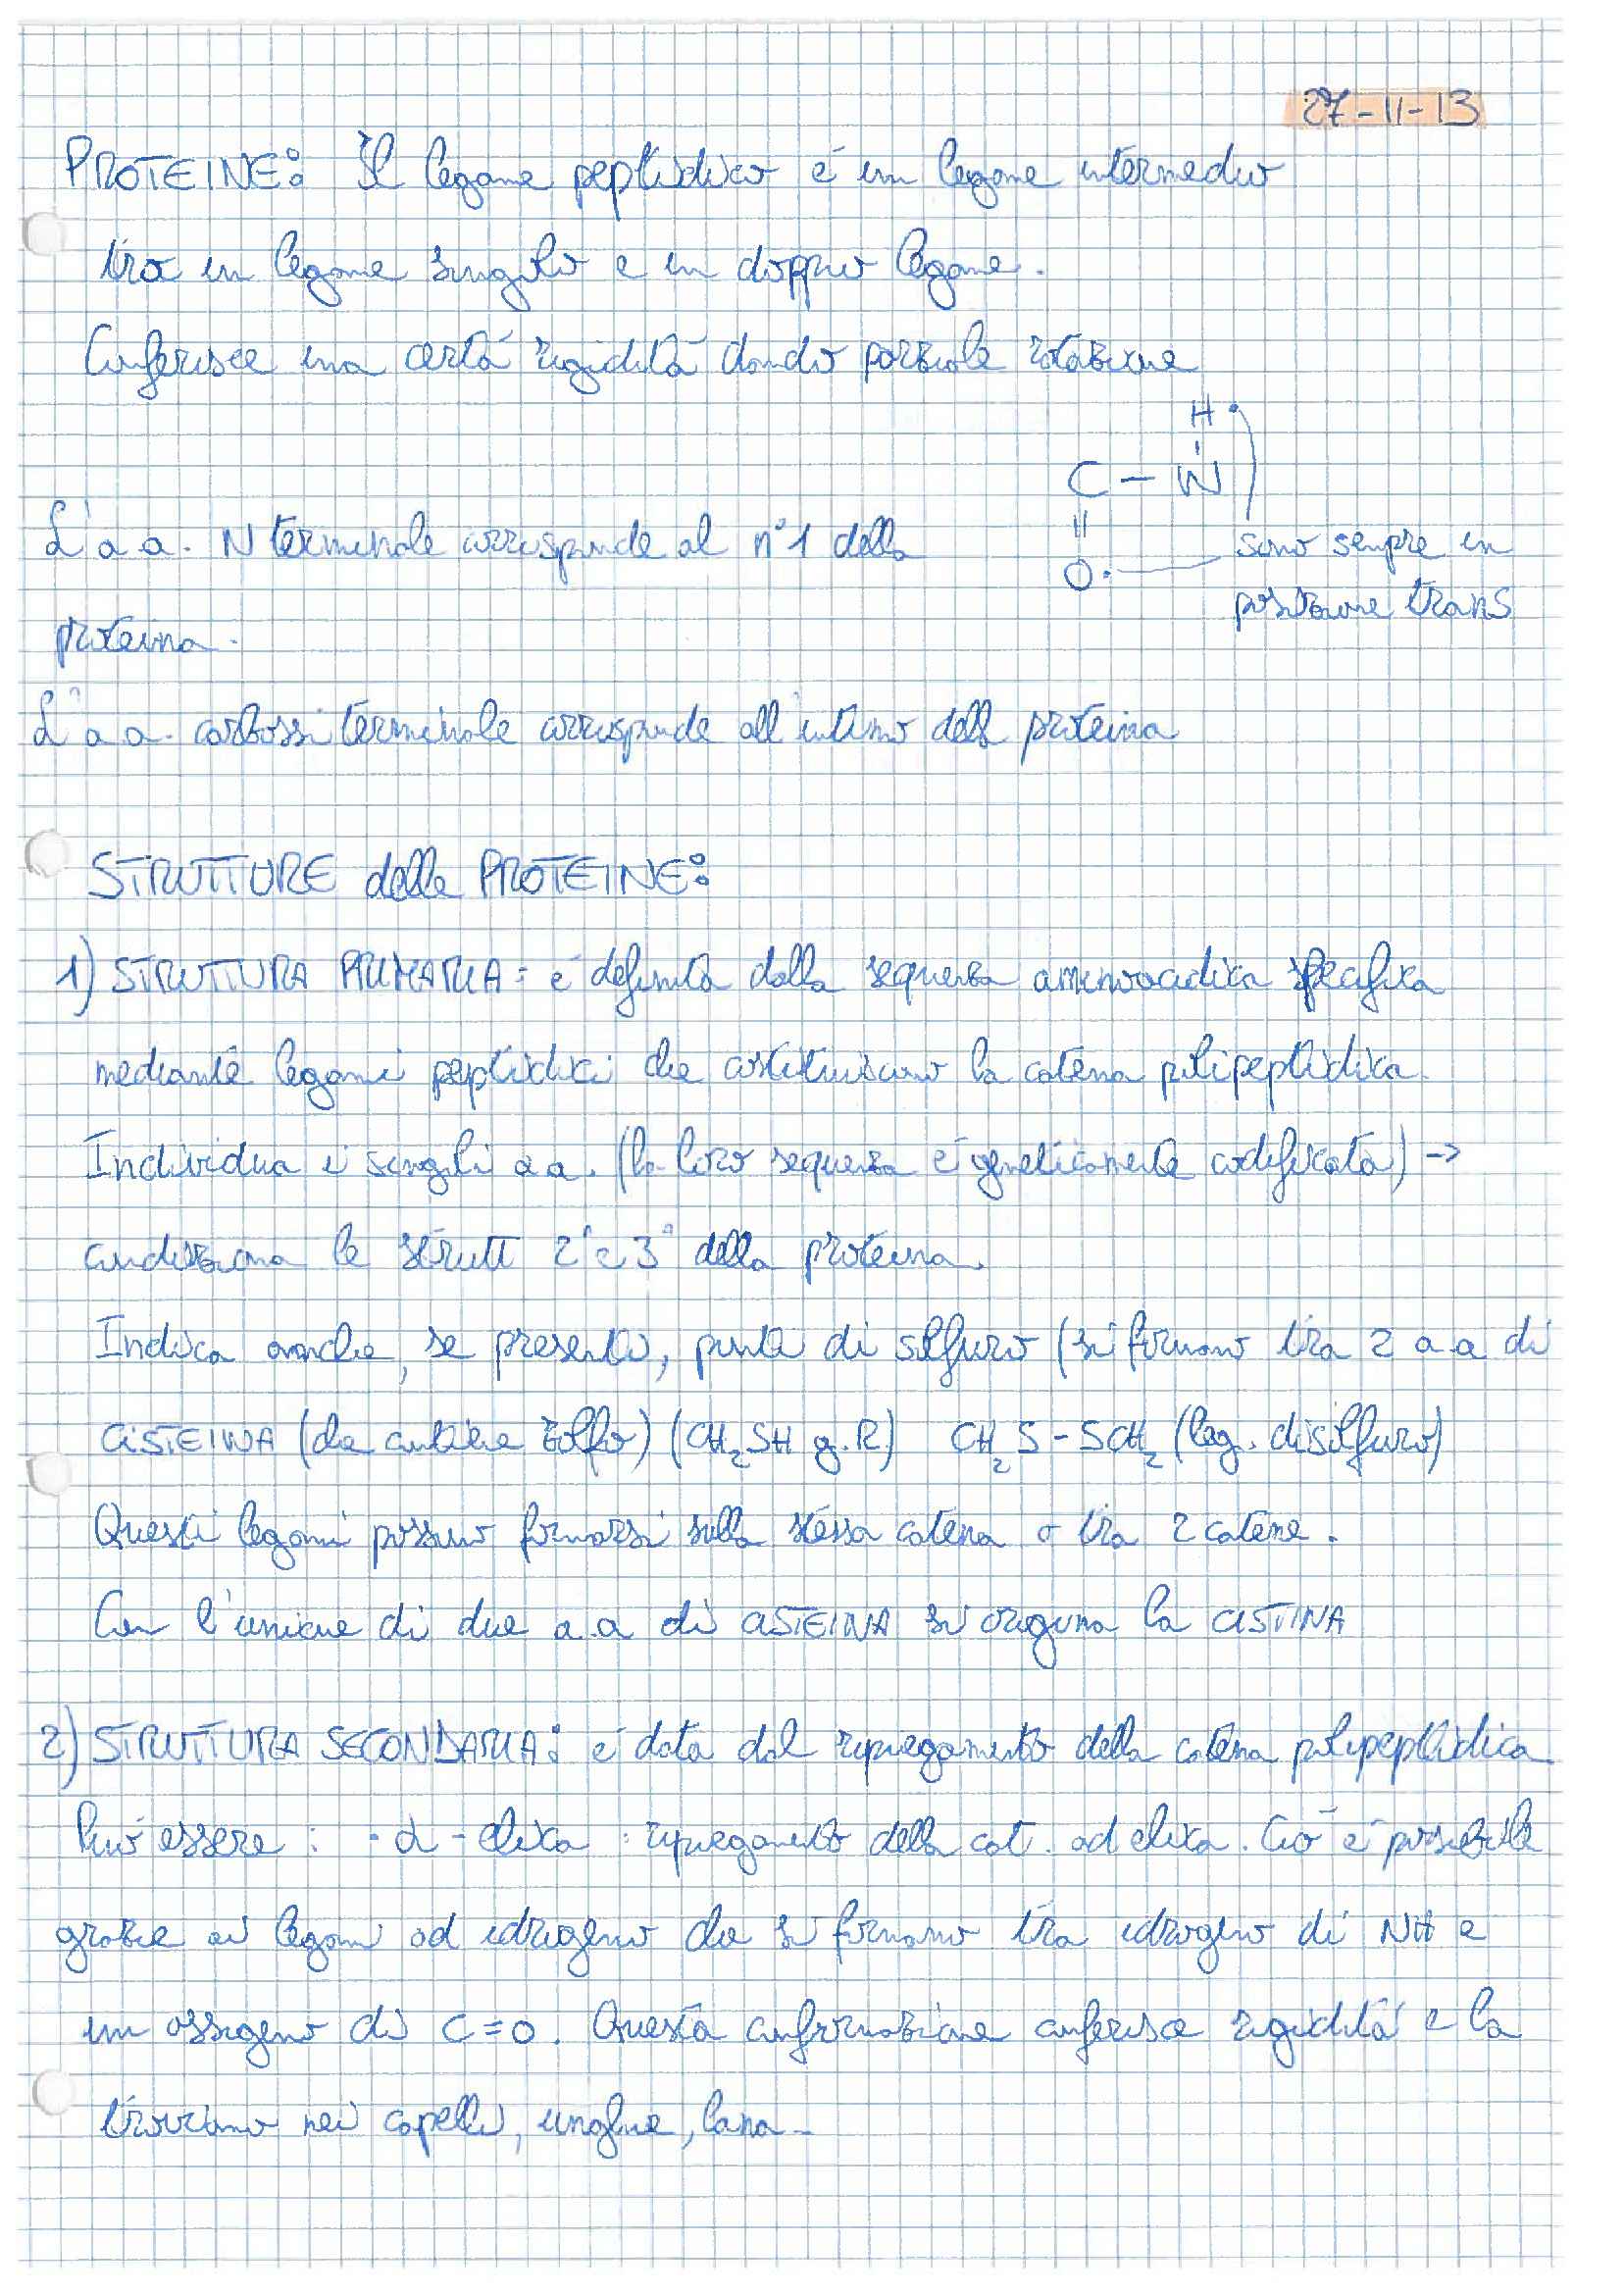 27-11-13
PROTEINE: Il legame peptidico é un legame intermedio
tra un legame singolo e un doppio legame.
Conferisce una certa rigidità dando parziale rotazione
H
C - N
L'a a. N terminale corrisponde al n°1 della
||
sono sempre in
O
posizione trans
proteina.
L'a a. carbossi terminale corrisponde all'ultimo della proteina
STRUTTURE delle PROTEINE:
1) STRUTTURA PRIMARIA: é definita dalla sequenza amminoacidica specifica
mediante legami peptidici che costituiscono la catena polipeptidica.
Individua i singoli a a. (la loro sequenza é geneticamente codificata) ->
condiziona le strutt 2° e 3° della proteina.
Indica anche, se presenti, ponti di solfuro (si formano tra 2 a.a di
CISTEINA (che contiene zolfo) (CH2SH g.R) CH2S-SCH2 (leg. disolfuro)
Questi legami possono formarsi sulla stessa catena o tra 2 catene.
Con l'unione di due a.a di CISTEINA si origina la CISTINA
2) STRUTTURA SECONDARIA: é data dal ripiegamento della catena polipeptidica
Puó essere: · α-elica: ripiegamento della cat. ad elica. Ció é possibile
grazie ai legami ad idrogeno che si formano tra idrogeno di NH e
un ossigeno di C=O. Questa conformazione conferisce rigidità e la
troviamo nei capelli, unghie, lana-